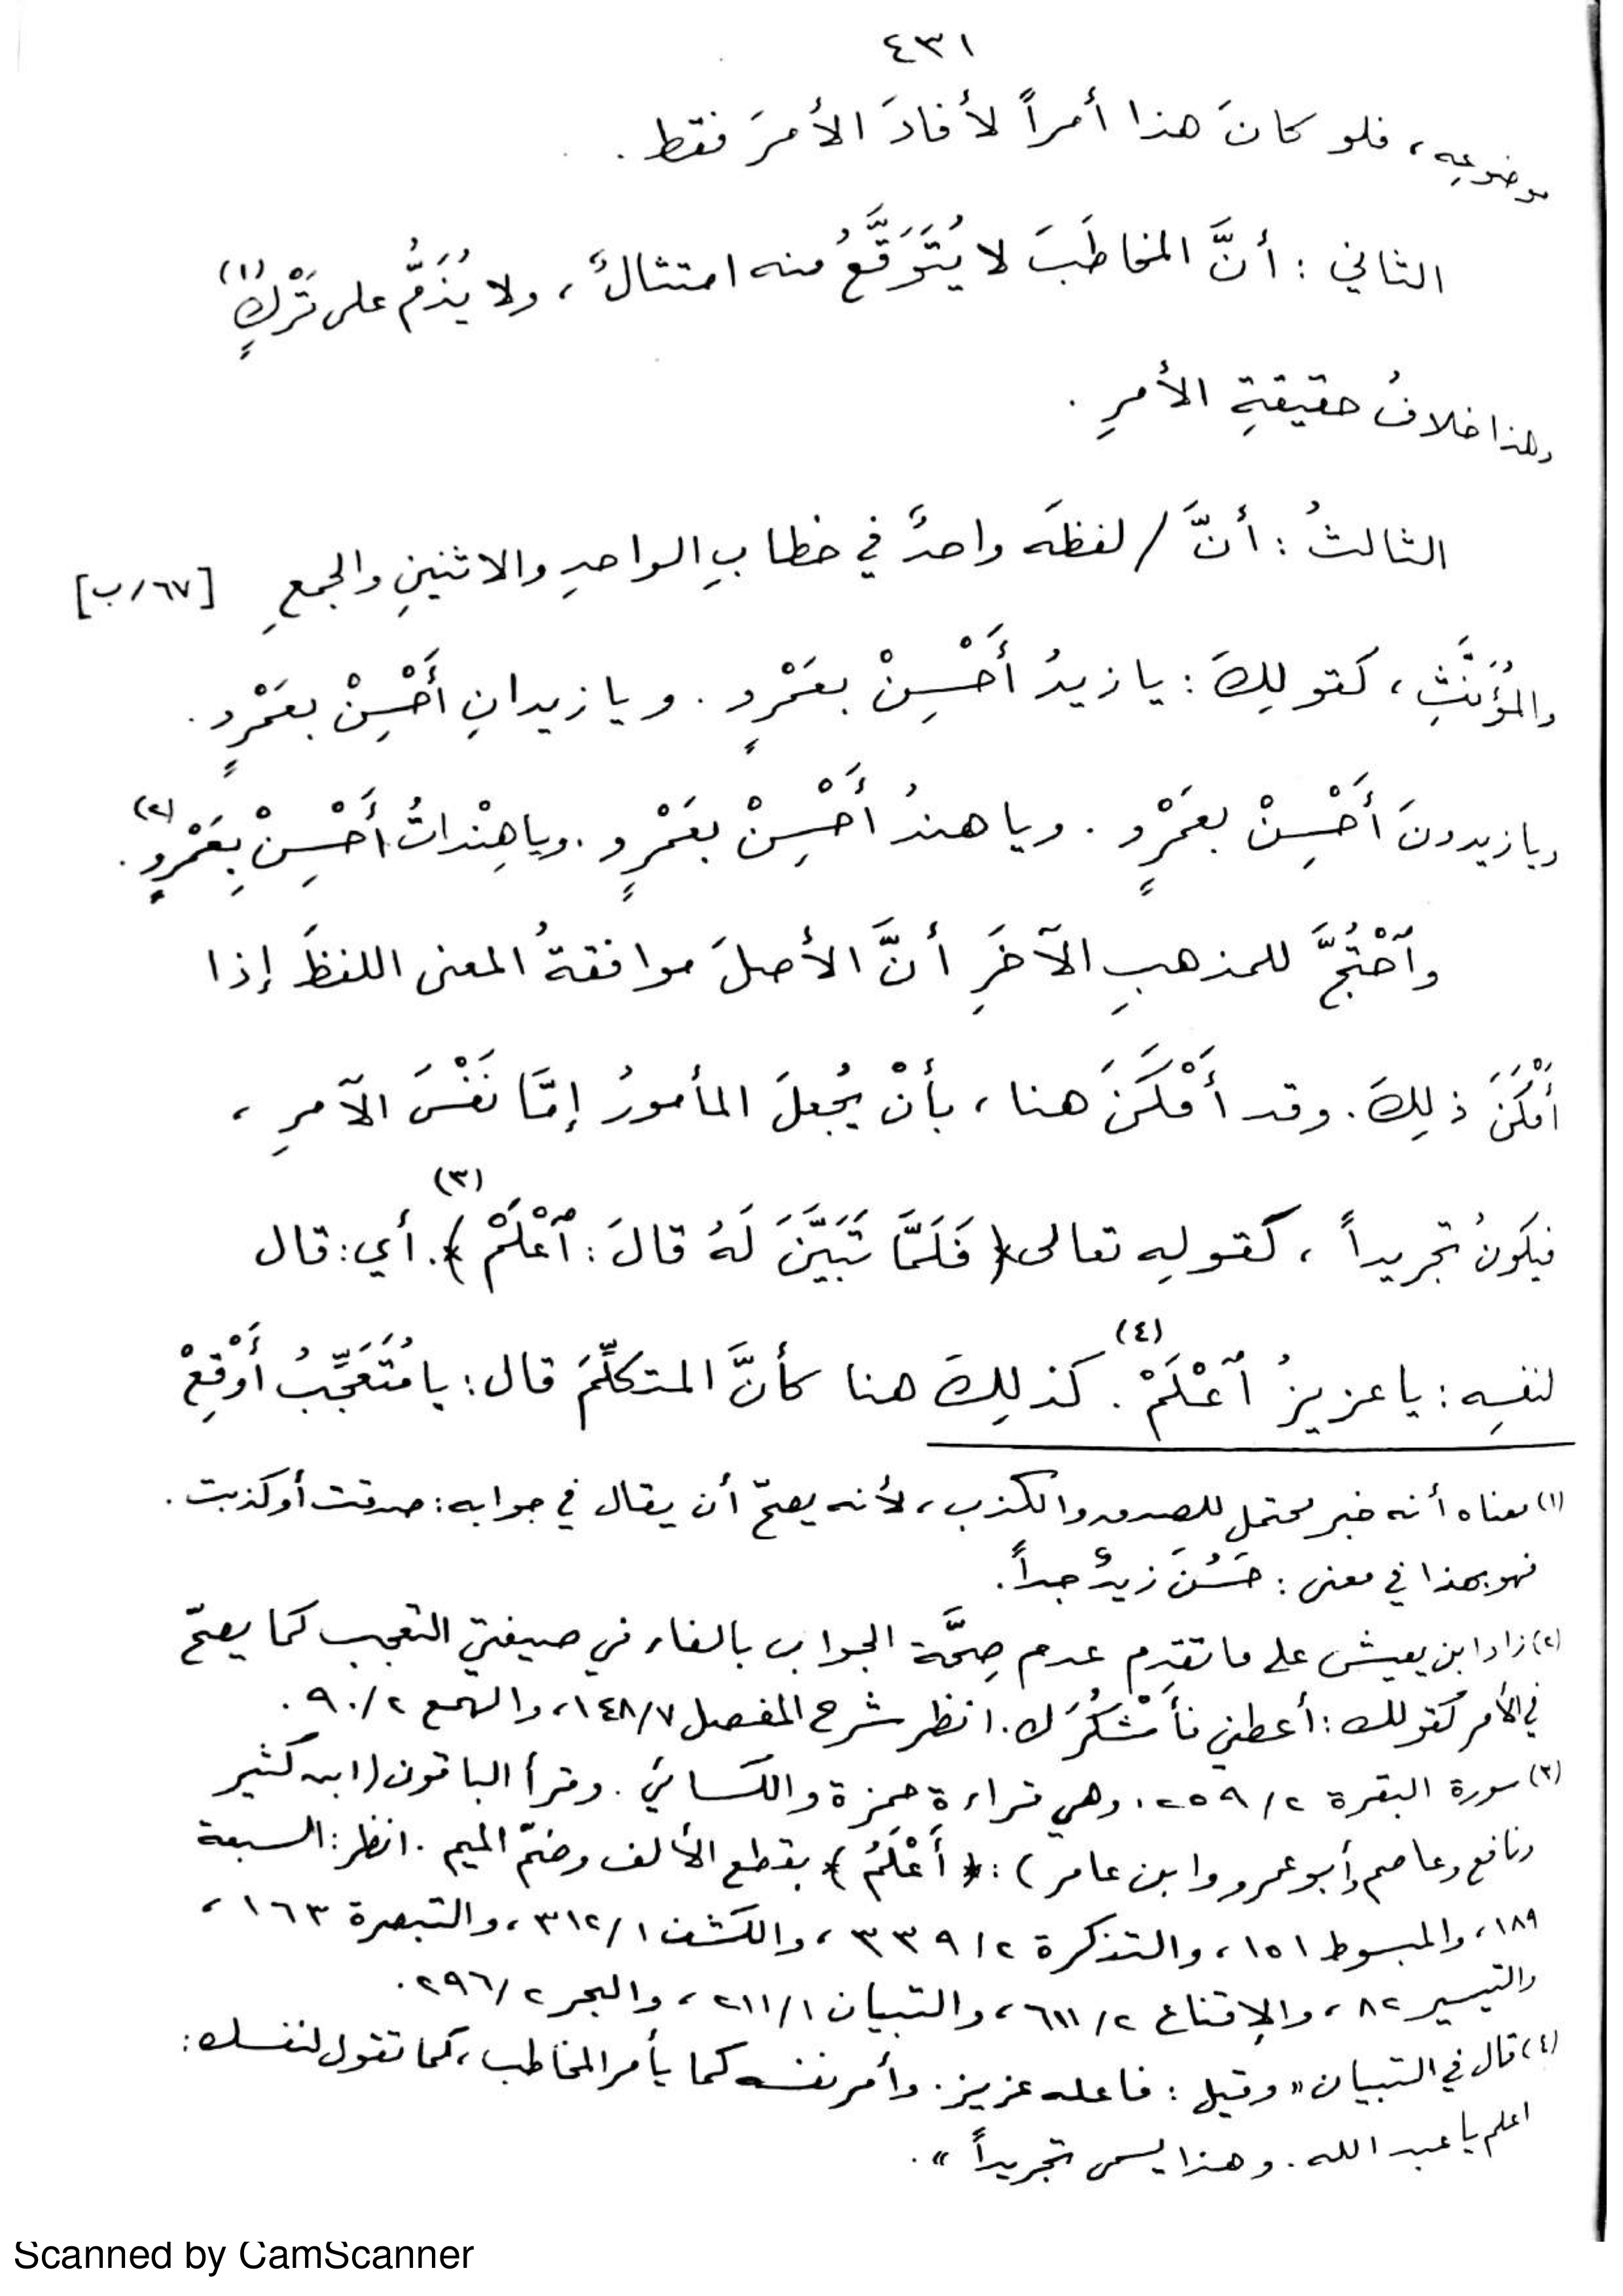 ٤٣١
موضوعِه، فلو كانَ هذا أمراً لأفادَ الأمرَ فقط.
الثاني : أنَّ المخاطَبَ لا يُتَوَقَّعُ منه امتثالٌ، ولا يُذَمُّ على تَرْكٍ(١)
وهذا خلافُ حقيقةِ الأمرِ .
الثالثُ : أنَّ / لفظَه واحدٌ في خطابِ الواحدِ والاثنينِ والجمعِ [٦٧/ب]
والمُؤَنَّثِ، كقولِكَ : يا زيدُ أَحْسِنْ بعَمْرٍو . ويا زيدانِ أَحْسِنْ بعَمْرٍو .
ويا زيدونَ أَحْسِنْ بعَمْرٍو . ويا هندُ أَحْسِنْ بعَمْرٍو . ويا هِنْداتُ أَحْسِنْ بِعَمْرٍو(٢) .
وٱحْتُجَّ للمذهبِ الآخَرِ أنَّ الأصلَ موافقةُ المعنى اللفظَ إذا
أَمْكَنَ ذلِكَ . وقد أَمْكَنَ هنا، بأنْ يُجعلَ المأمورُ إمَّا نَفْسَ الآمرِ ،
فيكونُ تجريداً ، كقولِه تعالى ﴿ فَلَمَّا تَبَيَّنَ لَهُ قالَ : ٱعْلَمْ ﴾(٣). أي : قال
لنفسِه : يا عزيزُ ٱعْلَمْ(٤). كذلِكَ هنا كأنَّ المتكلِّمَ قال : يا مُتَعَجِّبُ أَوْقِعْ
(١) معناه أنه خبر محتمل للصدق والكذب، لأنه يصحّ أن يقال في جوابه : صدقت أو كذبت .
فهو بهذا في معنى : حَسُنَ زيدٌ جداً .
(٢) زاد ابن يعيش على ما تقدم عدم صِحَّة الجواب بالفاء في صيغتي التعجب كما يصحّ
في الأمر كقولك : أعطني فأَشْكُرَك. انظر شرح المفصل ١٤٨/٧، والهمع ٩٠/٢ .
(٣) سورة البقرة ٢٥٩/٢ . وهي قراءة حمزة والكسائي . وقرأ الباقون (ابن كثير
ونافع وعاصم وأبو عمرو وابن عامر) : ﴿ أَعْلَمُ ﴾ بقطع الألف وضمّ الميم . انظر : السبعة
١٨٩، والمبسوط ١٥١، والتذكرة ٣٣٩/٢ ، والكشف ٣١٢/١، والتبصرة ١٦٣ ،
والتيسير ٨٢ ، والإقناع ٦١١/٢، والتبيان ٢١١/١ ، والبحر ٢٩٦/٢ .
(٤) قال في التبيان « وقيل : فاعله عزيز . وأمر نفسه كما يأمر المخاطب، كما تقول لنفسك :
اعلم يا عبد الله . وهذا يسمى تجريداً » .
Scanned by CamScanner